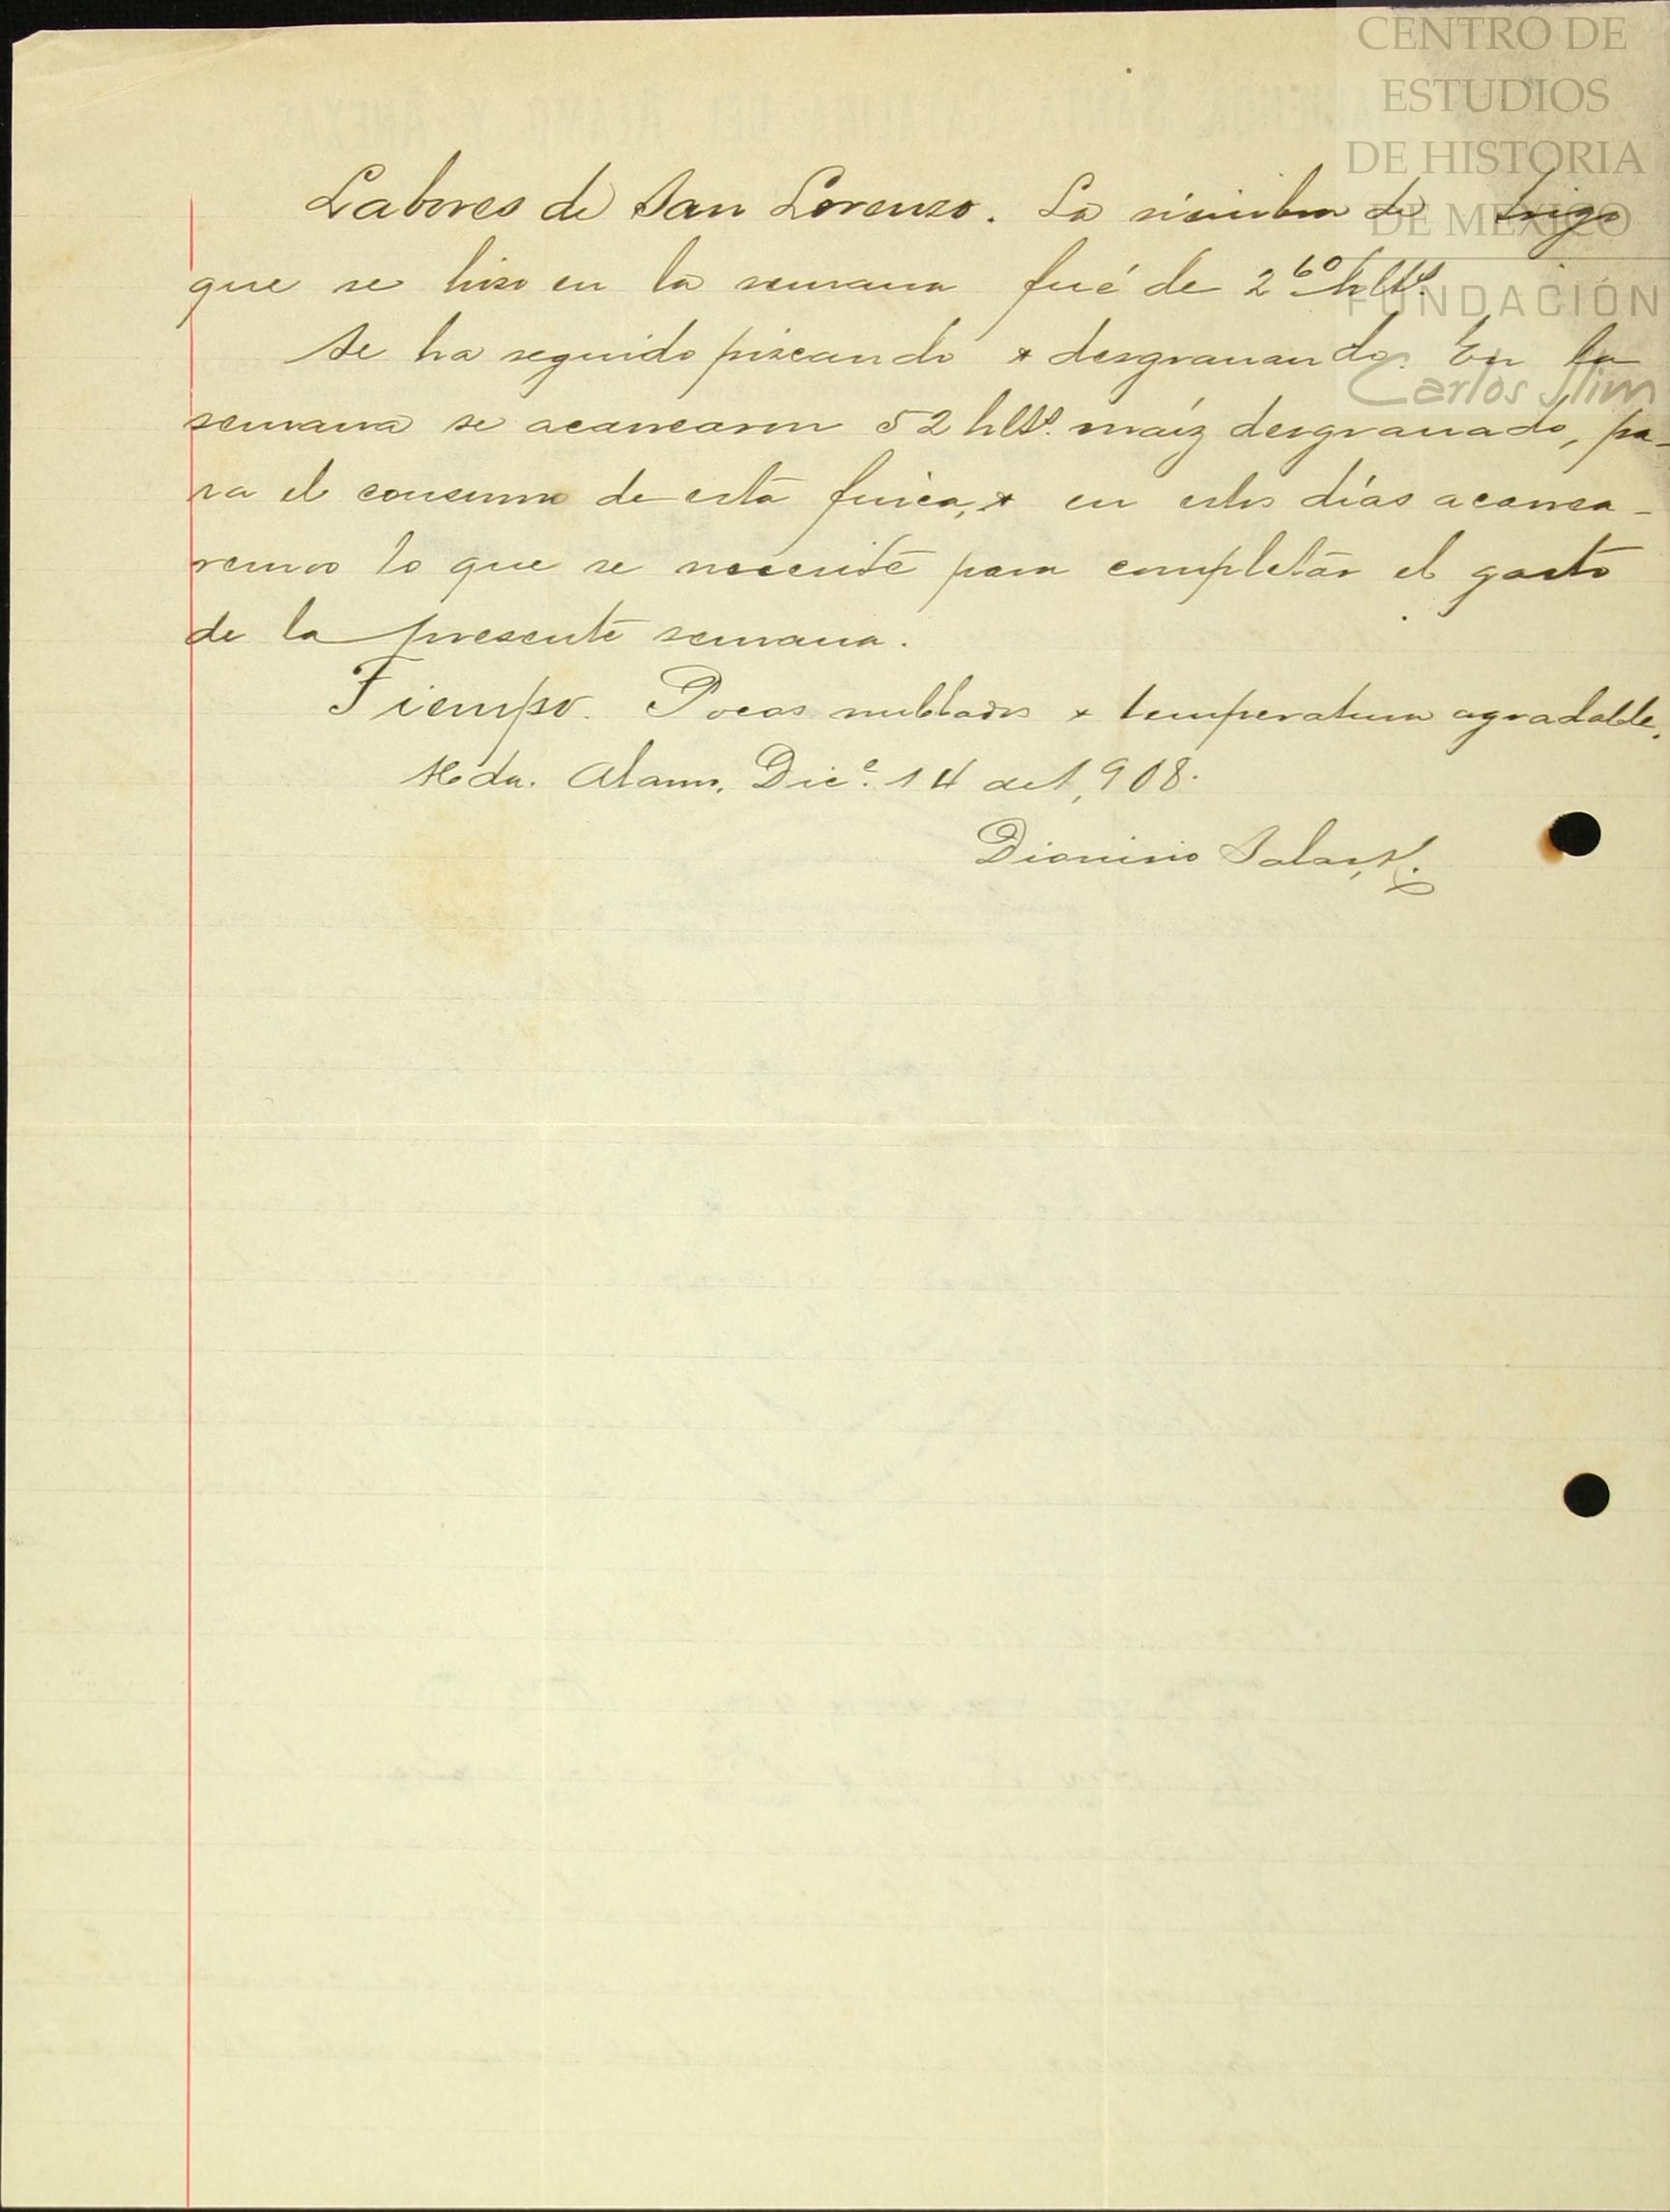 CENTRO DE
ESTUDIOS
DE HISTORIA
DE MEXICO
FUNDACIÓN
Carlos Slim
Labores de San Lorenzo. La siembra de trigo
que se hizo en la semana fué de 2 60 hlts.
Se ha seguido piscando & desgranando. En la
semana se acarrearon 52 hlts. maíz desgranado, pa-
ra el consumo de esta finca, & en estos días acarrea-
remos lo que se necesite para completar el gasto
de la presente semana.
Tiempo. Pocos nublados & temperatura agradable.
Hda. Alamo, Dice. 14 de 1,908.
Dionisio